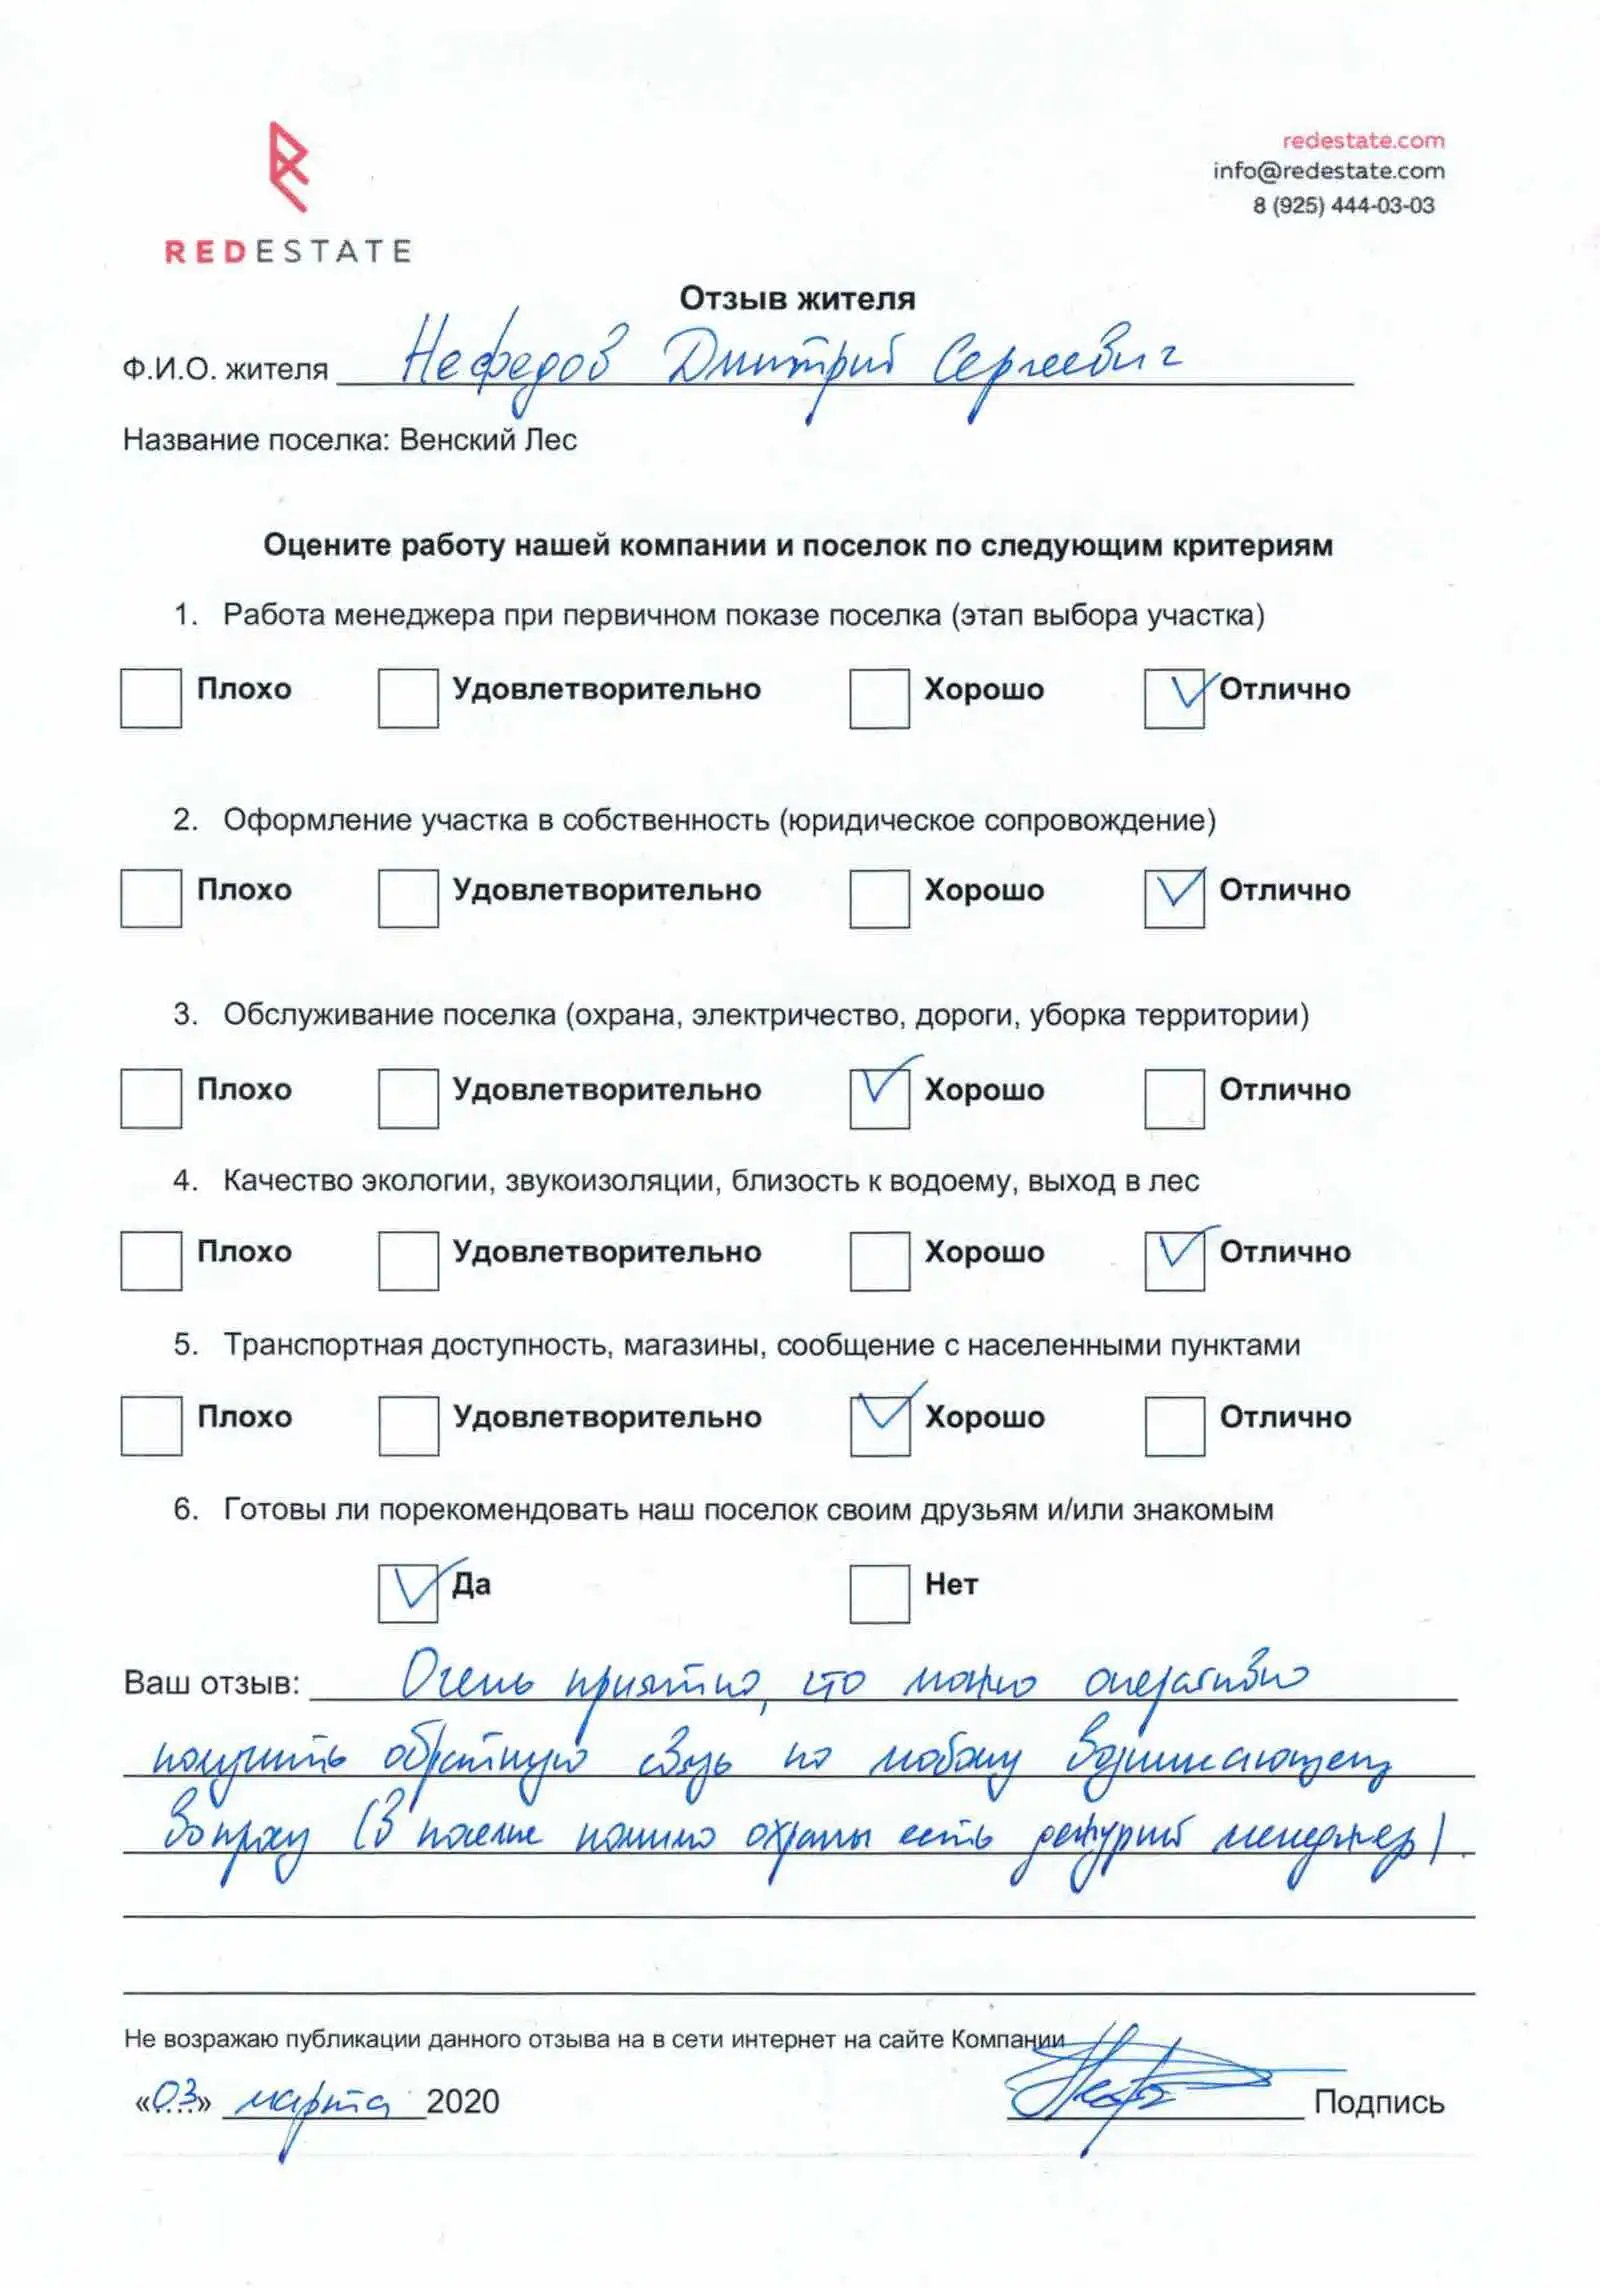 REDESTATE
redestate.com
info@redestate.com
8 (925) 444-03-03
Отзыв жителя
Ф.И.О. жителя Нефедов Дмитрий Сергеевич
Название поселка: Венский Лес
Оцените работу нашей компании и поселок по следующим критериям
1. Работа менеджера при первичном показе поселка (этап выбора участка)
Плохо Удовлетворительно Хорошо Отлично
2. Оформление участка в собственность (юридическое сопровождение)
Плохо Удовлетворительно Хорошо Отлично
3. Обслуживание поселка (охрана, электричество, дороги, уборка территории)
Плохо Удовлетворительно Хорошо Отлично
4. Качество экологии, звукоизоляции, близость к водоему, выход в лес
Плохо Удовлетворительно Хорошо Отлично
5. Транспортная доступность, магазины, сообщение с населенными пунктами
Плохо Удовлетворительно Хорошо Отлично
6. Готовы ли порекомендовать наш поселок своим друзьям и/или знакомым
Да Нет
Ваш отзыв: Очень приятно, что можно оперативно
получить обратную связь по любому возникающему
вопросу (В поселке помимо охраны есть дежурный менеджер).
Не возражаю публикации данного отзыва на в сети интернет на сайте Компании
«03» марта 2020
Подпись